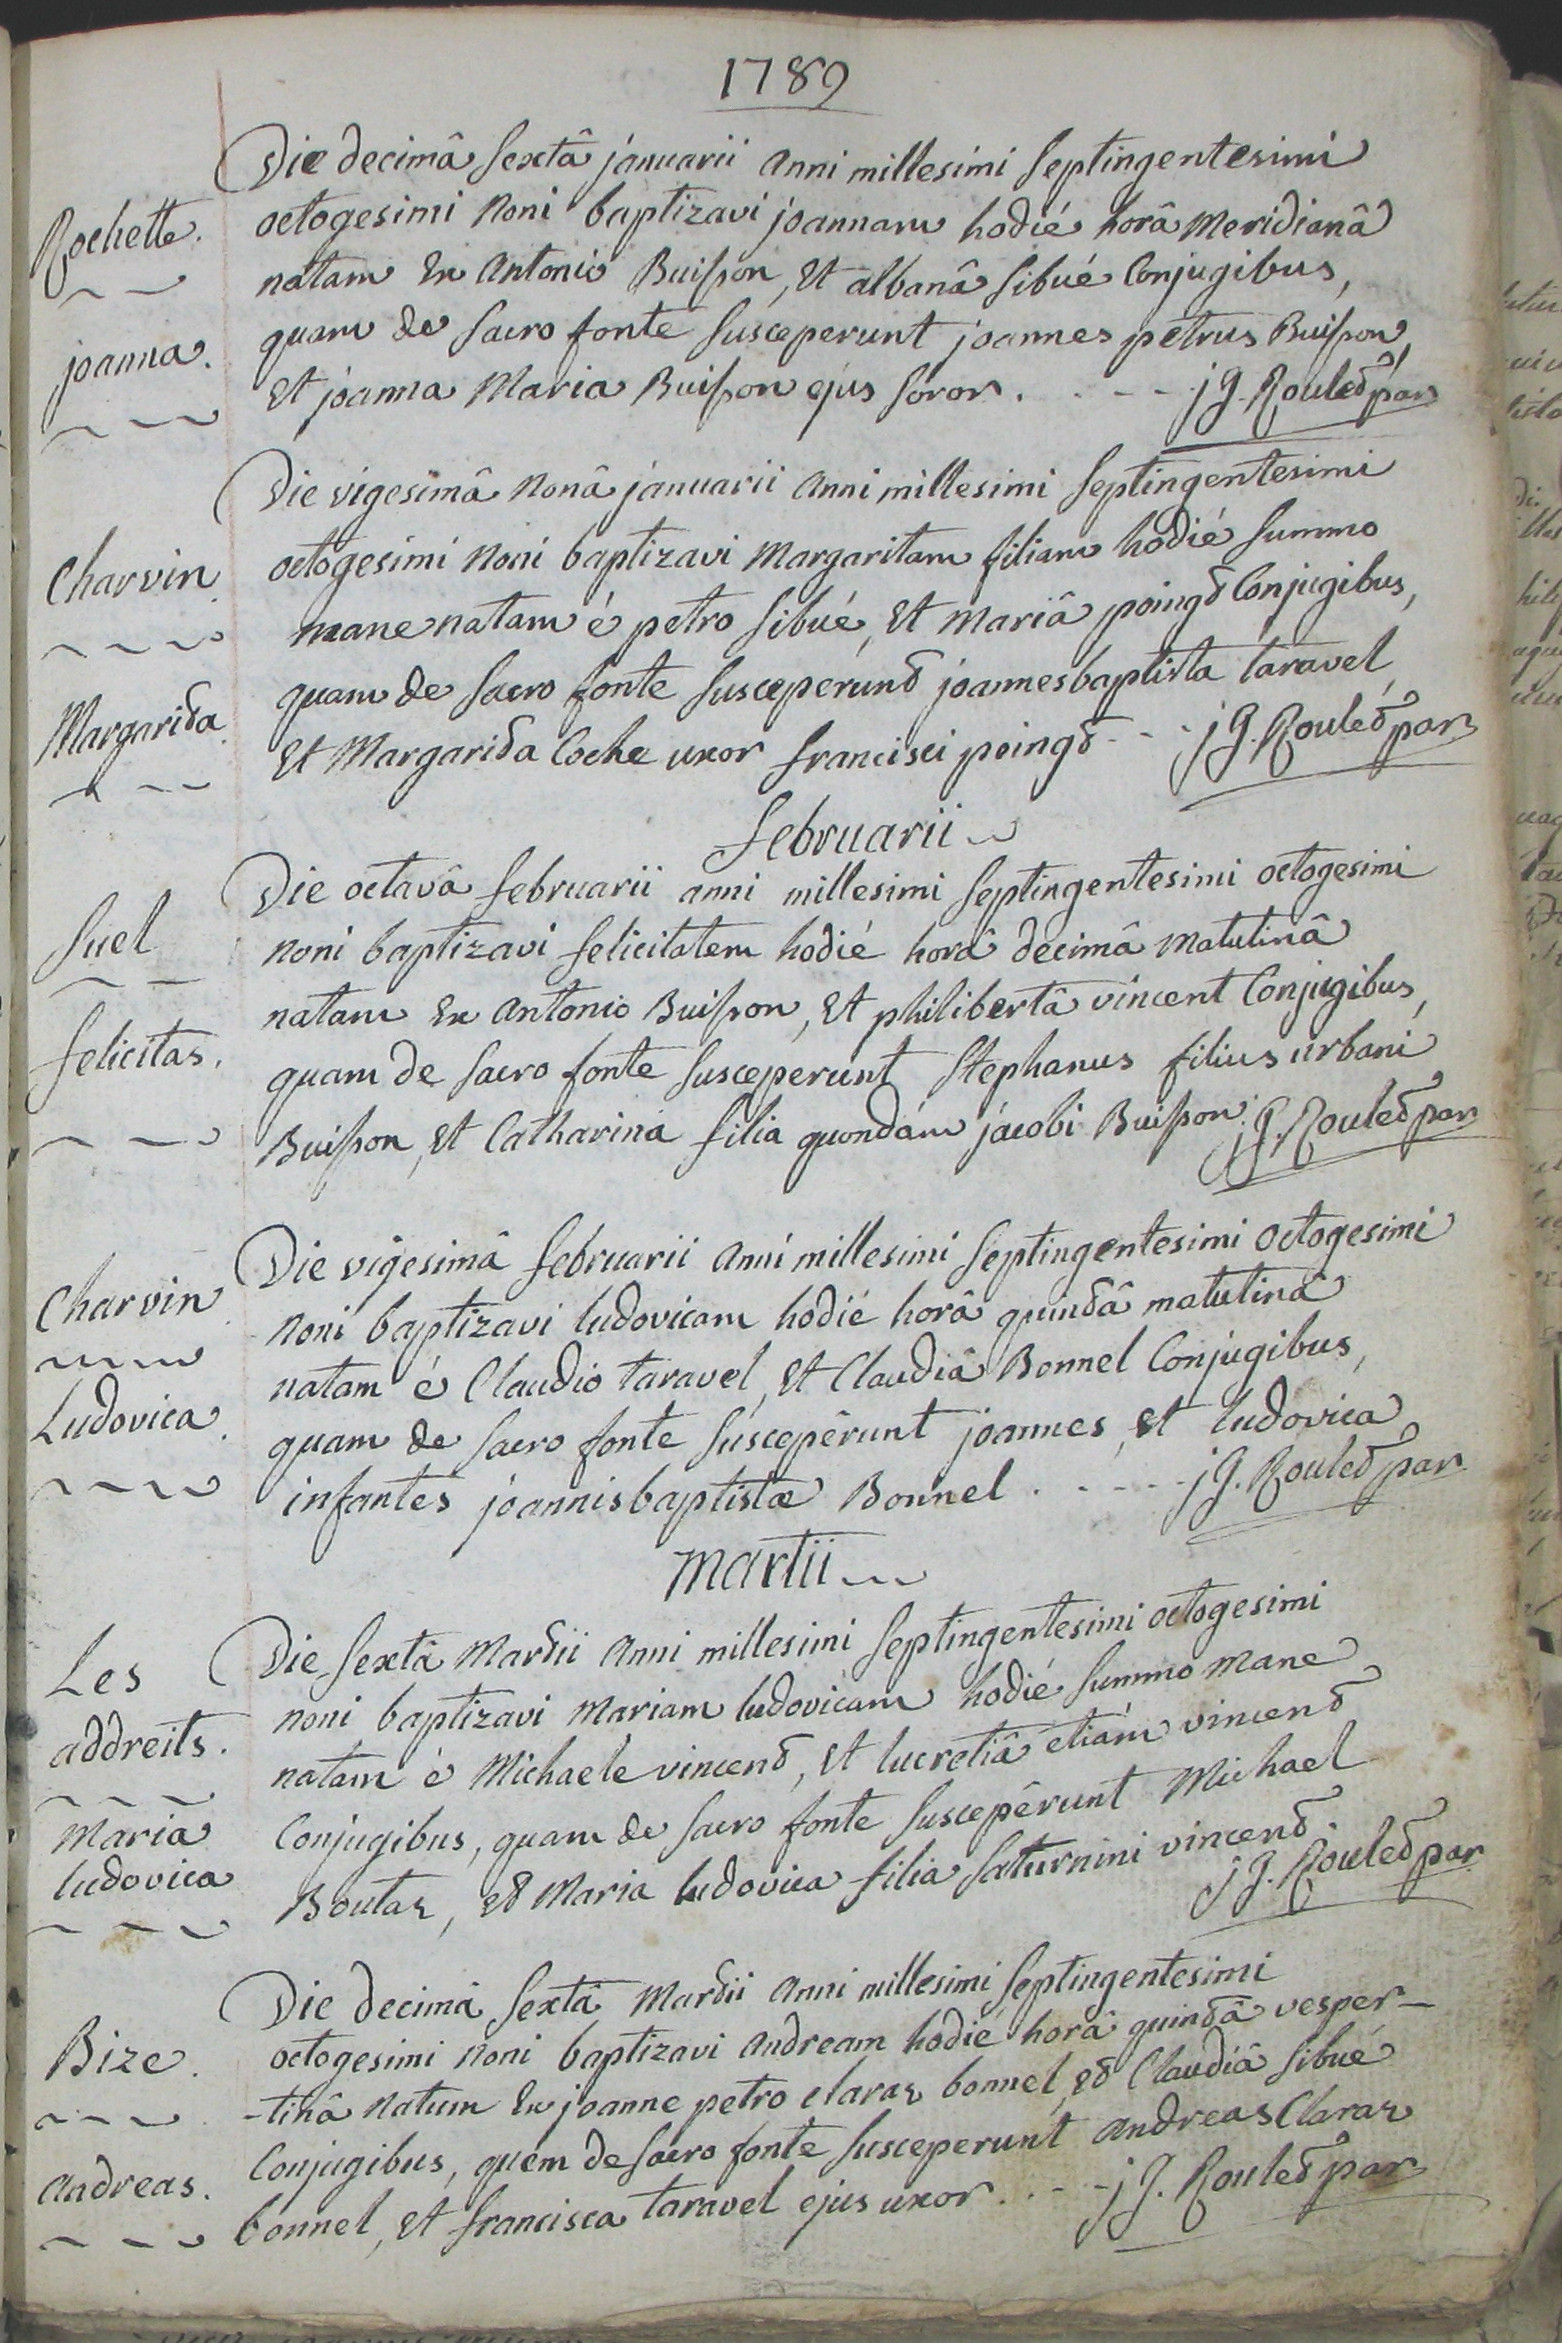 1789
Die decimâ sextâ januarii anni millesimi septingentesimi
octogesimi noni baptizavi joannam hodié horâ meridianâ
natam ex antonio Buisson, et albanâ sibué conjugibus,
quam de sacro fonte susceperunt joannes petrus Buisson,
et joanna Maria Buisson ejus soror. - - - j G. Roulet par
Rochette.
joanna.
Die vigesimâ nonâ januarii anni millesimi septingentesimi
octogesimi noni baptizavi Margaritam filiam hodié summo
mane natam é petro sibué, et mariâ poingt conjugibus,
quam de sacro fonte susceperunt joannesbaptista taravel,
et Margarita Coche uxor francisci poingt - - - j G. Roulet par
Charvin
Margarita
februarii
Die octavâ februarii anni millesimi septingentesimi octogesimi
noni baptizavi felicitatem hodié horâ decimâ matutinâ
natam ex antonio Buisson, et philibertâ vincent conjugibus,
quam de sacro fonte susceperunt stephanus filius urbani
Buisson, et Catharina filia quondám jacobi Buisson. j G. Roulet par
suel
felicitas.
Die vigesimâ februarii anni millesimi septingentesimi octogesimi
noni baptizavi ludovicam hodié horâ quintâ matutinâ
natam é Claudio taravel, et Claudiâ Bonnel conjugibus,
quam de sacro fonte suscepêrunt joannes, et ludovica
infantes joannisbaptistæ Bonnel. - - - - j G. Roulet par
Charvin
Ludovica.
martii
Die sextâ martii anni millesimi septingentesimi octogesimi
noni baptizavi mariam ludovicam hodié summo mane
natam é Michaele vincent, et lucretiâ etiám vincent
conjugibus, quam de sacro fonte suscepêrunt Michael
Boutaz, et Maria ludovica filia saturnini vincent.
j G. Roulet par
Les
addreits.
maria
ludovica
Die decimâ sextâ martii anni millesimi septingentesimi
octogesimi noni baptizavi andream hodié horâ quintâ vesper-
-tinâ natum ex joanne petro claraz bonnel, et Claudiâ sibué
conjugibus, quem de sacro fonte susceperunt andreas Claraz
bonnel, et francisca taravel ejus uxor. - - - j G. Roulet par
Bize.
andreas.